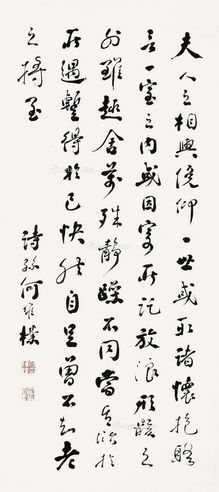 夫人之相與俛仰一世或取諸懷抱晤
言一室之內或因寄所託放浪形骸之
外雖趣舍萬殊靜躁不同當其欣於
所遇蹔得於己快然自足曾不知老
之將至
詩孫何維樸